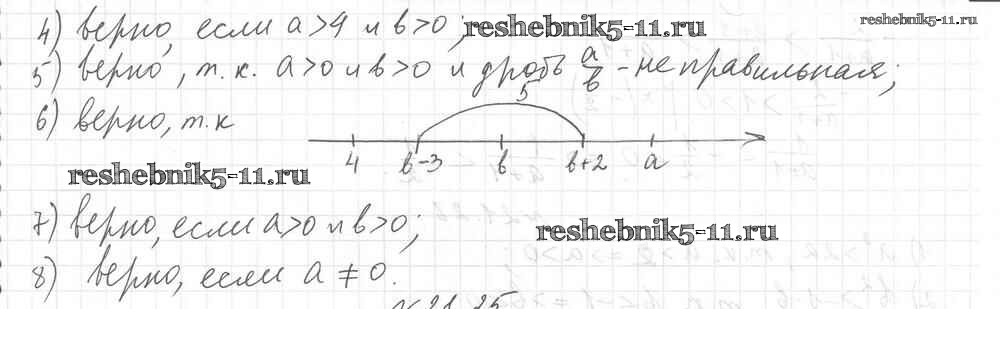 4) верно, если а>4 и в>0; reshebnik5-11.ru
reshebnik5-11.ru
5) верно, т.к. а>0 и в>0 и дробь а/в - неправильная;
6) верно, т.к
5
4 в-3 в в+2 а
reshebnik5-11.ru
7) верно, если а>0 и в>0;
reshebnik5-11.ru
8) верно, если а ≠ 0.